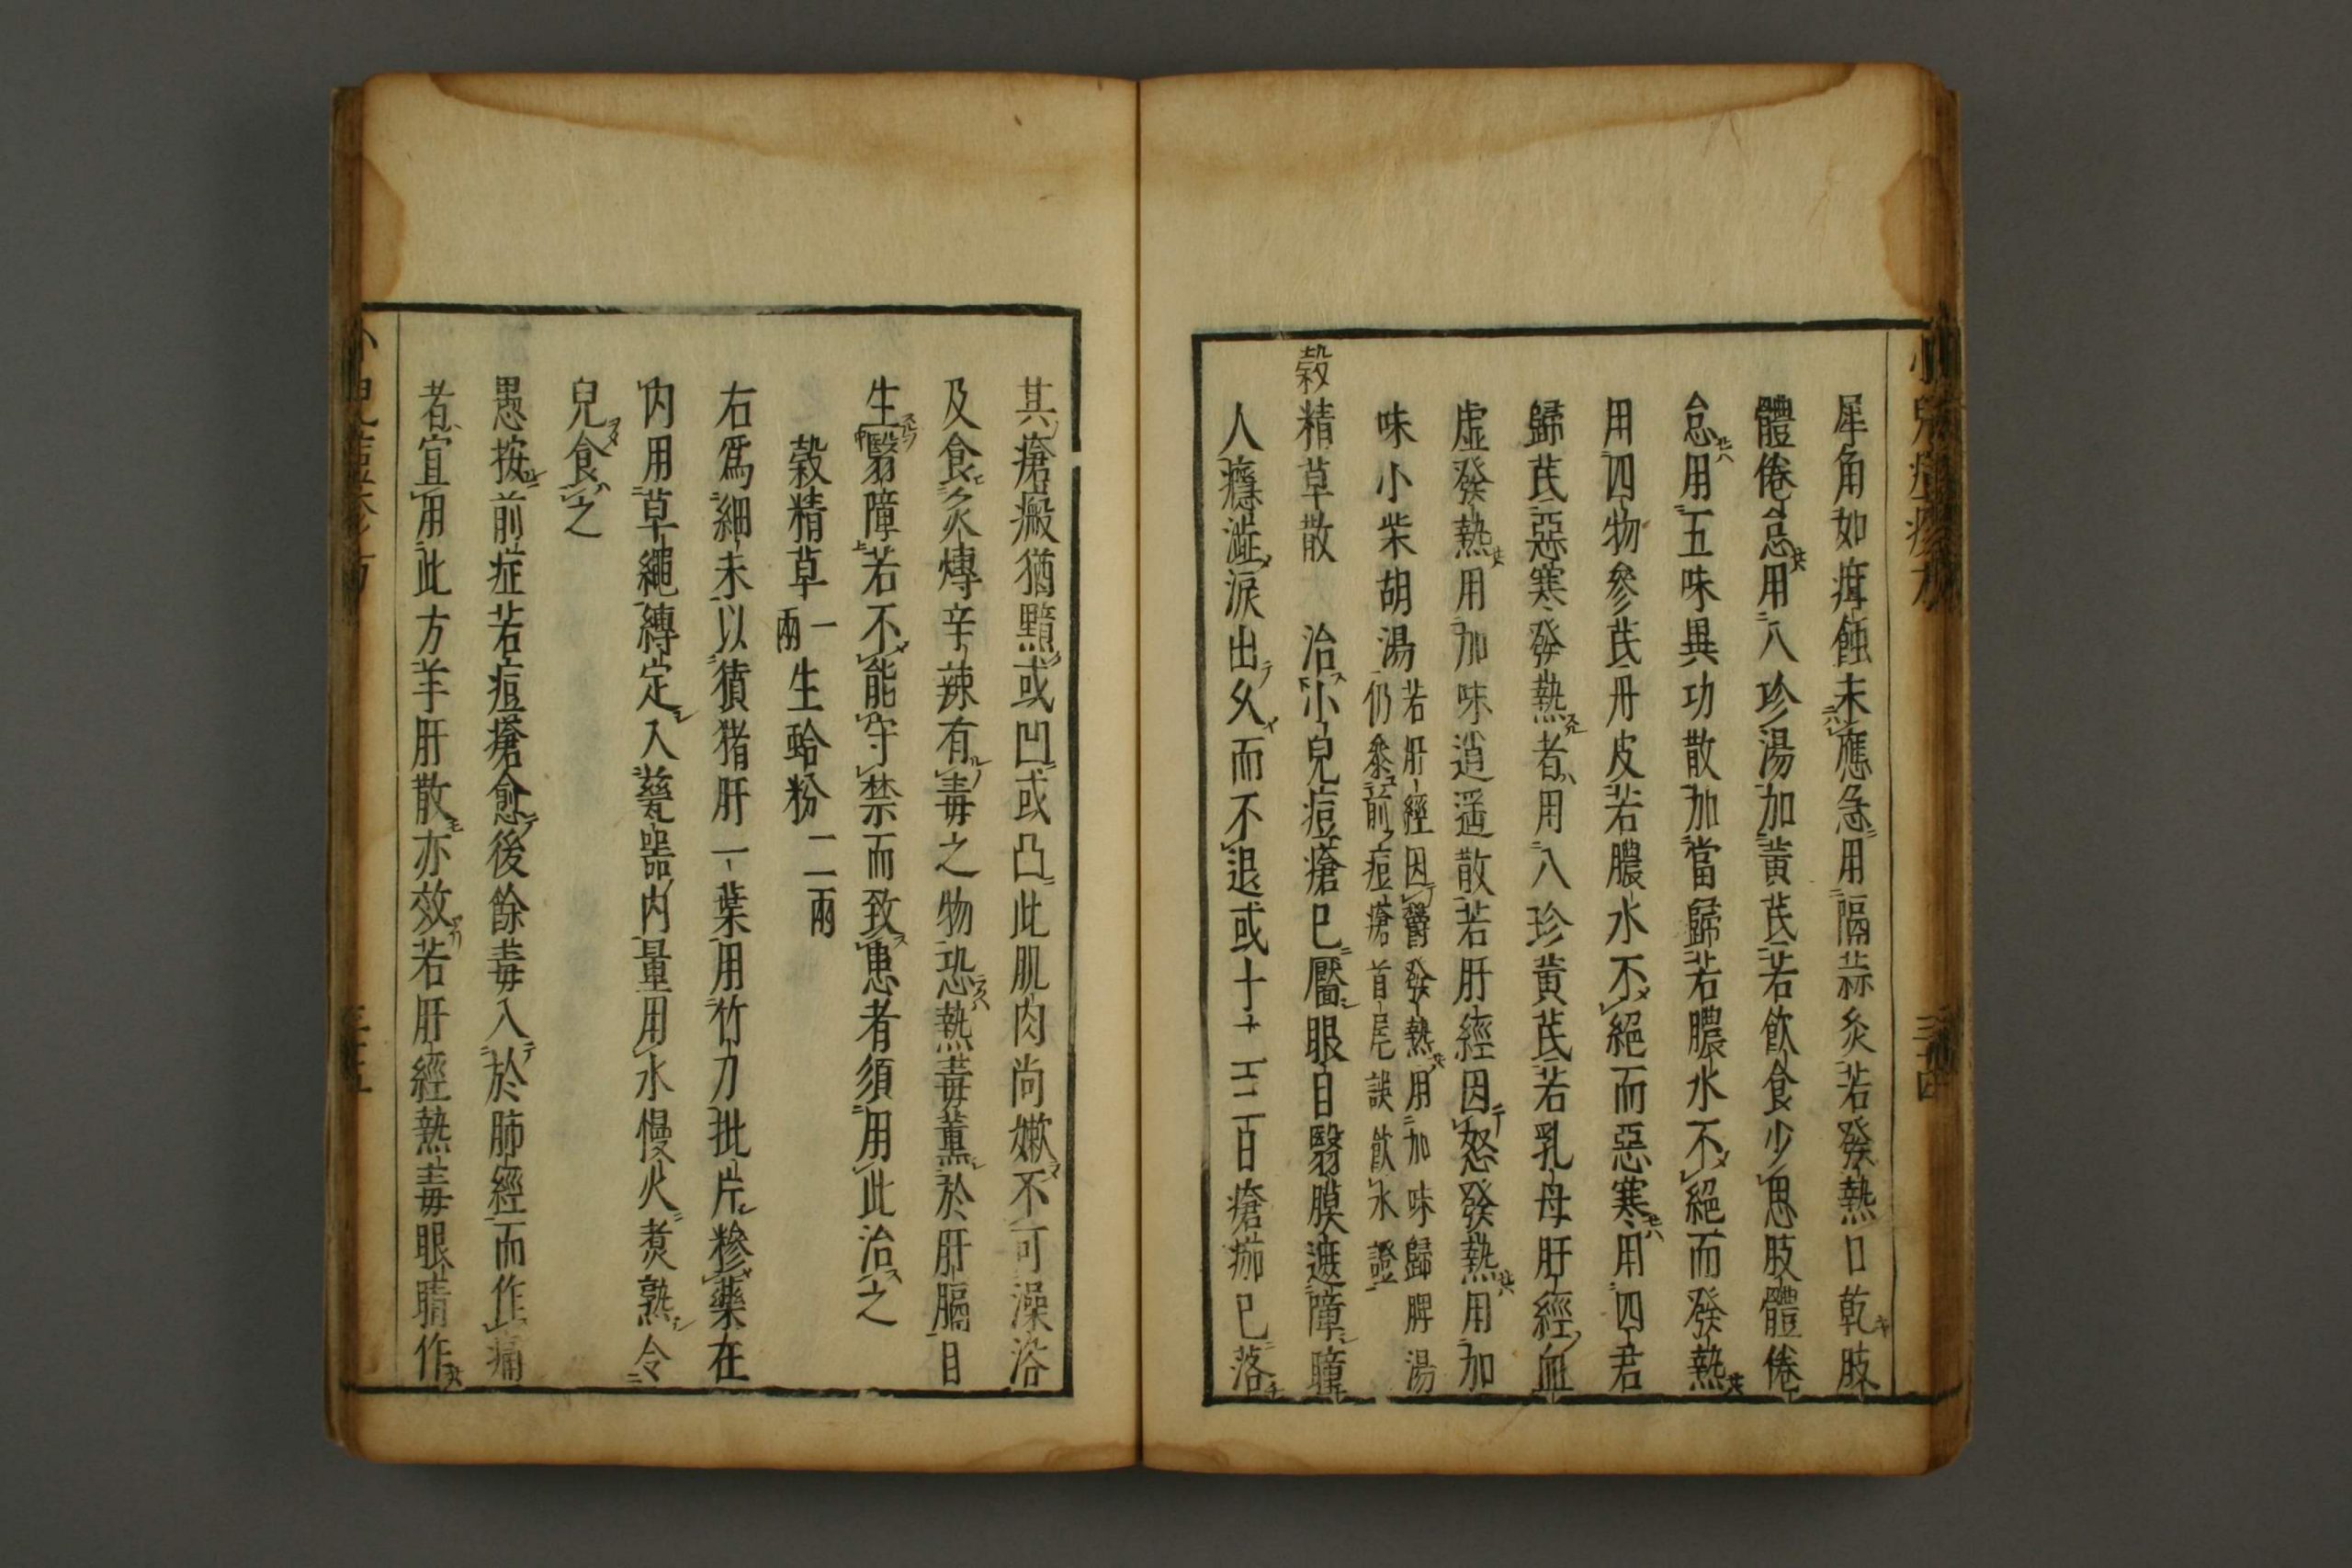 犀角如疳蝕未應急用隔蒜灸若發熱口乾肢
體倦怠用八珍湯加黃芪若飲食少思肢體倦
怠用五味異功散加當歸若膿水不絕而發熱
用四物參芪丹皮若膿水不絕而惡寒用四君
歸芪惡寒發熱者用八珍黃芪若乳母肝經血
虛發熱用加味逍遥散若肝經因怒發熱用加
味小柴胡湯若肝經因鬱發熱用加味歸脾湯
仍叅前痘瘡首尾誤飲水證
糓精草散 治小兒痘瘡已靨眼目翳膜遮障瞳
人癮澁淚出久而不退或十二三日瘡痂已落
其瘡瘢猶黯或凹或凸此肌肉尚嫩不可澡浴
及食炙煿辛辣有毒之物恐熱毒薫於肝膈目
生翳障若不能守禁而致患者須用此治之
糓精草一兩 生蛤粉二兩
右爲細末以獖猪肝一葉用竹刀批片糝藥在
内用草繩縛定入甆噐内量用水慢火煑熟令
兒食之
愚按前症若痘瘡愈後餘毒入於肺經而作痛
者宜用此方羊肝散亦效若肝經熱毒眼睛作